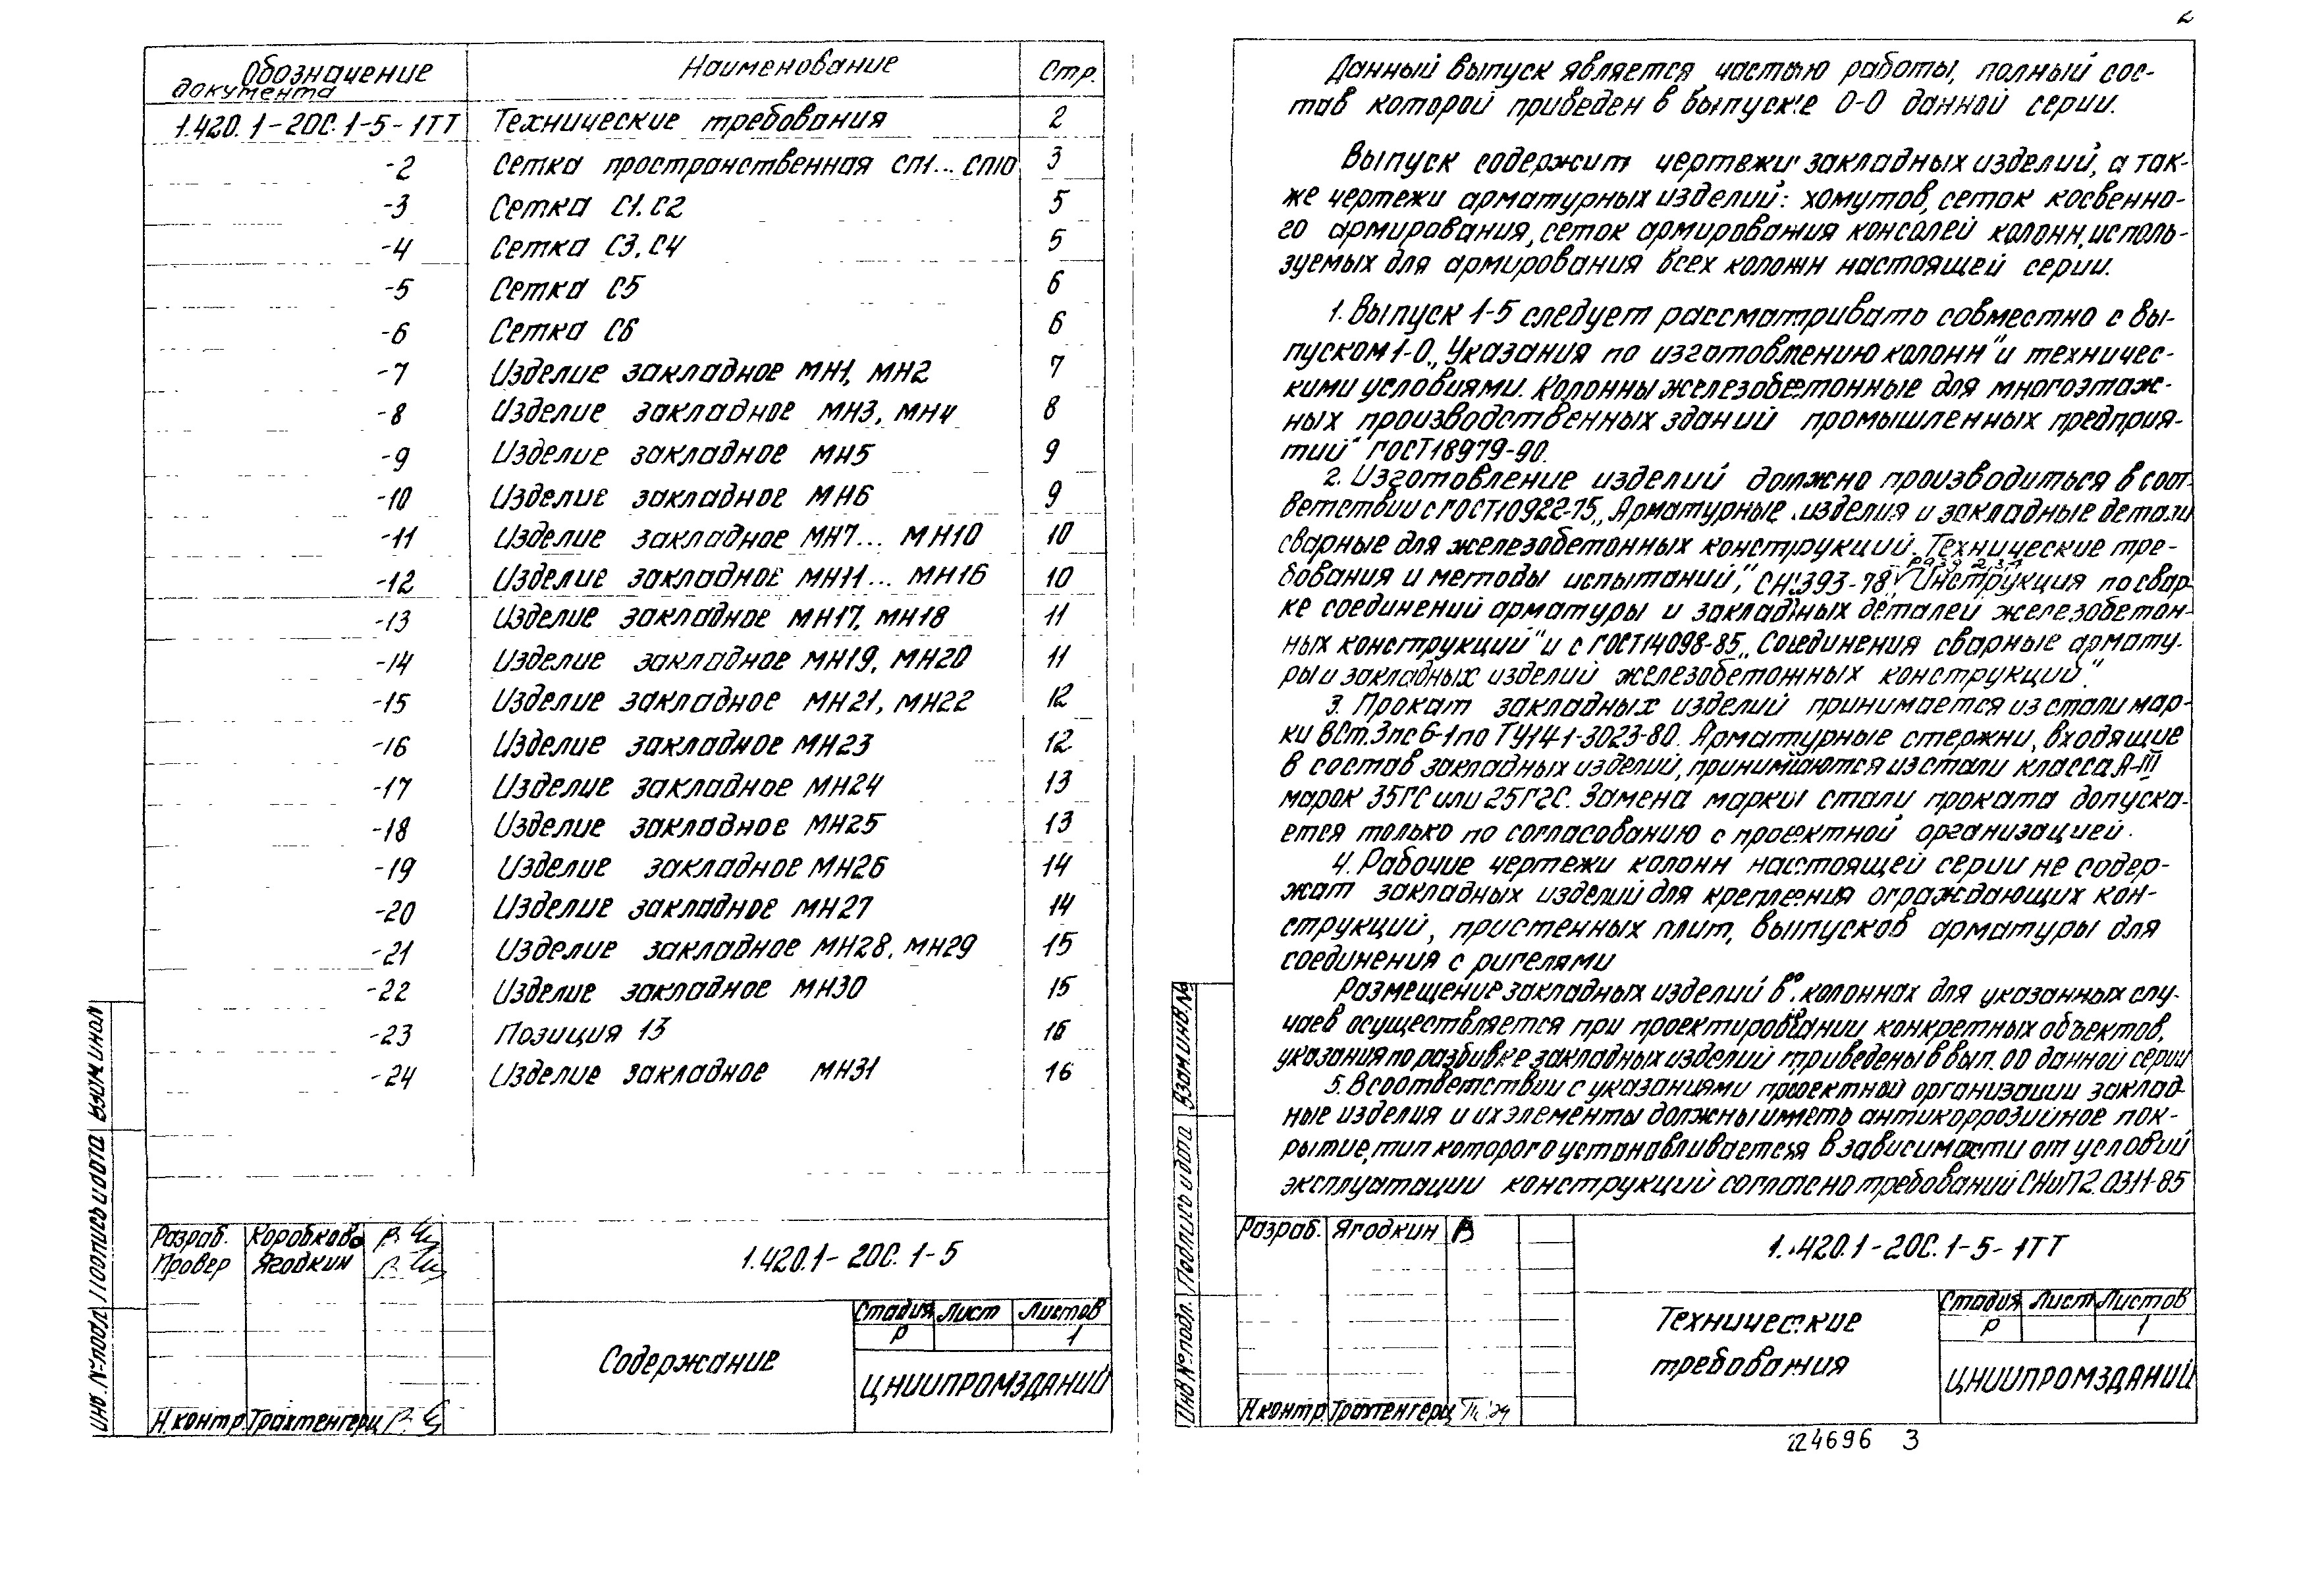 Обозначение документа Наименование Стр.
1.420.1-20С.1-5-1ТТ Технические требования 2
-2 Сетка пространственная СП1...СП10 3
-3 Сетка С1. С2 5
-4 Сетка С3. С4 5
-5 Сетка С5 6
-6 Сетка С6 6
-7 Изделие закладное МН1, МН2 7
-8 Изделие закладное МН3, МН4 8
-9 Изделие закладное МН5 9
-10 Изделие закладное МН6 9
-11 Изделие закладное МН7... МН10 10
-12 Изделие закладное МН11... МН16 10
-13 Изделие закладное МН17, МН18 11
-14 Изделие закладное МН19, МН20 11
-15 Изделие закладное МН21, МН22 12
-16 Изделие закладное МН23 12
-17 Изделие закладное МН24 13
-18 Изделие закладное МН25 13
-19 Изделие закладное МН26 14
-20 Изделие закладное МН27 14
-21 Изделие закладное МН28. МН29 15
-22 Изделие закладное МН30 15
-23 Позиция 13 16
-24 Изделие закладное МН31 16
Взам инв№
Подпись и дата
Инв. №подл
Разраб. Коробкова
Провер Ягодкин
Н.контр. Трахтенгерц
1.420.1-20С.1-5
Содержание
Стадия Лист Листов
Р 1
ЦНИИПРОМЗДАНИЙ
2
Данный выпуск является частью работы, полный сос-
тав которой приведен в выпуске 0-0 данной серии.
Выпуск содержит чертежи закладных изделий, а так-
же чертежи арматурных изделий: хомутов, сеток косвенно-
го армирования, сеток армирования консолей колонн, исполь-
зуемых для армирования всех колонн настоящей серии.
1. Выпуск 1-5 следует рассматривать совместно с вы-
пуском 1-0 „Указания по изготовлению колонн" и техничес-
кими условиями. Колонны железобетонные для многоэтаж-
ных производственных зданий промышленных предприя-
тий" ГОСТ 18979-90.
2. Изготовление изделий должно производиться в соот-
ветствии с ГОСТ 10922-75 „Арматурные изделия и закладные детали
сварные для железобетонных конструкций. Технические тре-
бования и методы испытаний", СН 393-78 „Инструкция по свар-
ке соединений арматуры и закладных деталей железобетон-
ных конструкций" и с ГОСТ 14098-85 „Соединения сварные армату-
ры и закладных изделий железобетонных конструкций".
3. Прокат закладных изделий принимается из стали мар-
ки ВСт.3пс6-1 по ТУ14-1-3023-80. Арматурные стержни, входящие
в состав закладных изделий, принимаются из стали класса А-III
марок 35ГС или 25Г2С. Замена марки стали проката допуска-
ется только по согласованию с проектной организацией.
4. Рабочие чертежи колонн настоящей серии не содер-
жат закладных изделий для крепления ограждающих кон-
струкций, пристенных плит, выпусков арматуры для
соединения с ригелями
Размещение закладных изделий в колоннах для указанных слу-
чаев осуществляется при проектировании конкретных объектов,
указания по разбивке закладных изделий приведены в вып. 0-0 данной серии
5. В соответствии с указаниями проектной организации заклад-
ные изделия и их элементы должны иметь антикоррозийное пок-
рытие, тип которого устанавливается в зависимости от условий
эксплуатации конструкций согласно требований СНиП 2.03.11-85
Взам.инв.№
Подпись и дата
Инв №подл.
Разраб. Ягодкин
Н.контр Трахтенгерц
1.420.1-20С.1-5-1ТТ
Технические
требования
Стадия Лист Листов
Р 1
ЦНИИПРОМЗДАНИЙ
24696 3